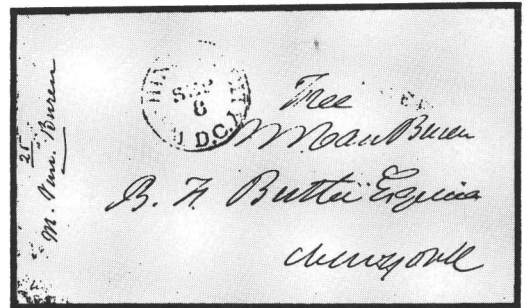 25
M. Van. Buren
SEP
8
D.C.
Free
MVanBuren
B. F. Butler Esquire